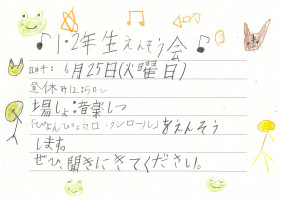 ♪1・2年生えんそう会♪
日時：6月25日(火曜日)
昼休み12:50〜
場しょ：音楽しつ
「ぴょんぴょこロックンロール」をえんそう
します。
ぜひ、聞きにきてください。